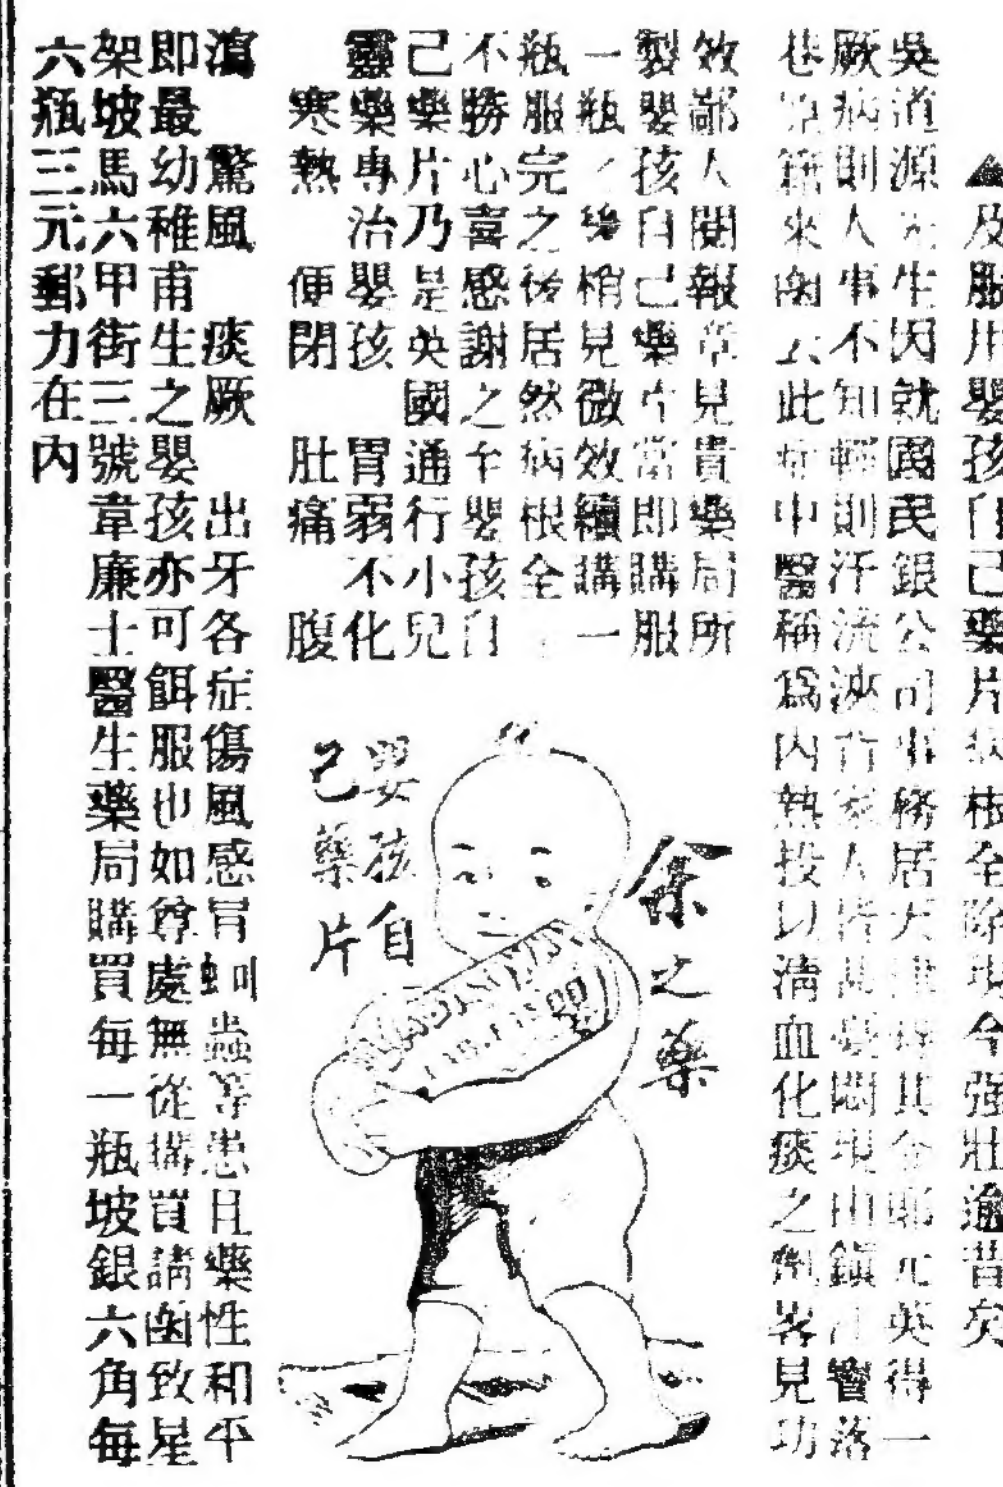 及服用嬰孩自己藥片病根全除現今强壯逾昔矣
吳道源先生因就國民銀公司事務居天津得其令郎元英得一
厥病則人事不知輕則汗流浹背家人皆甚憂悶現由鎮江寶落
巷原籍來函云此症中醫稱爲內熱投以清血化痰之劑畧見功
效鄙人閱報章見貴藥局所
製嬰孩自己藥片當即購服
一瓶之後稍見微效續購一
瓶服完之後居然病根全
不勝心喜感謝之至嬰孩自
己藥片乃是英國通行小兒
靈藥專治嬰孩 胃弱不化
寒熱 便閉 肚痛 腹
余之藥
嬰孩自
己藥片
瀉 驚風 痰厥 出牙各症傷風感冒蚘蟲等患且藥性和平
即最幼稚甫生之嬰孩亦可餌服也如尊處無從購買請函致星
架坡馬六甲街三號韋廉士醫生藥局購買每一瓶坡銀六角每
六瓶三元郵力在內